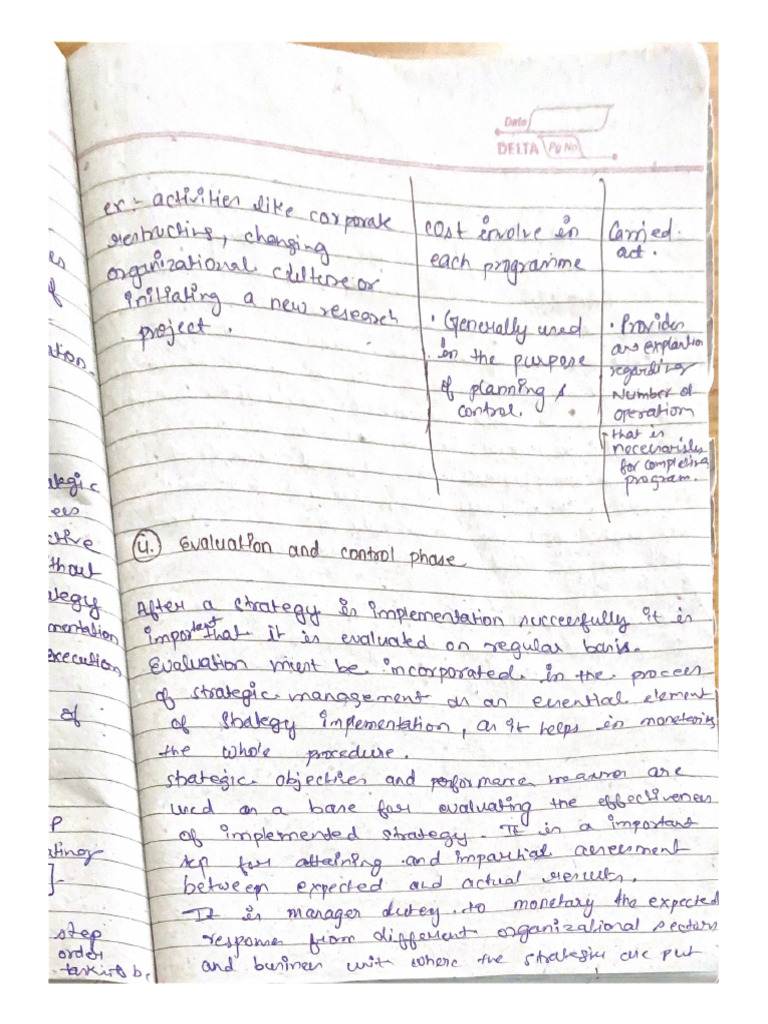 Date
DELTA Pg No
ex:- activities like corporate
restructing, changing
organizational culture or
initiating a new research
project.
cost involve in
each programme
• Generally used
in the purpose
of planning &
control.
Carried.
act.
• Provides
an explantion
regarding
Number of
operation
that is
necessarily
for completing
program.
4. Evaluation and control phase
After a strategy is implementation successfully it is
important that it is evaluated on regular basis.
Evaluation must be incorporated in the process
of strategic management as an essential element
of strategy implementation, as it helps in monetoring
the whole procedure.
strategic objectives and performance measures are
used as a base for evaluating the effectiveness
of implemented strategy. It is a important
step for attaining and impartial assessment
between expected and actual results.
It is manager dutey to monetary the expected
response from different organizational sectors
and business unit where the strategies are put
es
of
ation.
ategic
ees
ctive
thout
tegy
mentation
execution
of
P
ating
step
order